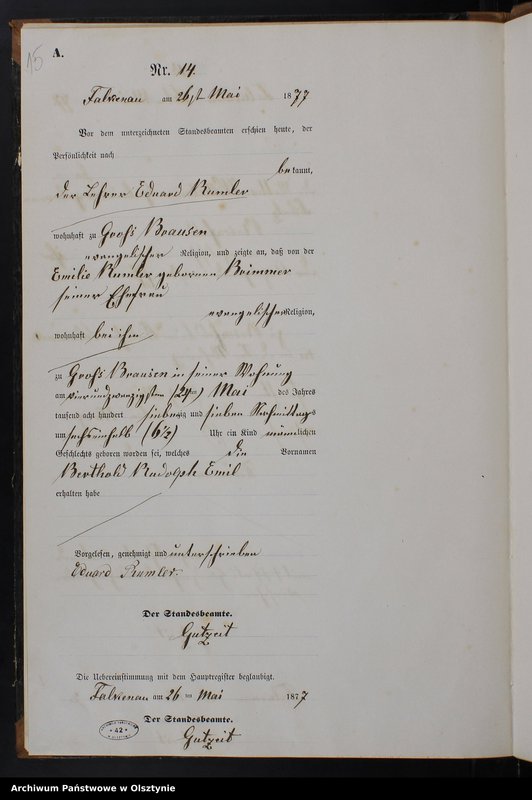 15
A.
Nr. 14.
Falkenau am 26st Mai 1877
Vor dem unterzeichneten Standesbeamten erschien heute, der
Persönlichkeit nach
bekannt,
der Lehrer Eduard Rumler
wohnhaft zu Groß Bransen
evangelischer Religion, und zeigte an, daß von der
Emilie Rumler geborenen Brimmer
seiner Ehefrau
evangelischer Religion,
wohnhaft bei ihm
zu Groß Bransen in seiner Wohnung
am vierundzwanzigsten (24ten) Mai des Jahres
tausend acht hundert siebenzig und sieben Nachmittags
um sechseinhalb (6½) Uhr ein Kind männlichen
Geschlechts geboren worden sei, welches die Vornamen
Berthold Rudolph Emil
erhalten habe
Vorgelesen, genehmigt und unterschrieben
Eduard Rumler.
Der Standesbeamte.
Gutzeit
Die Uebereinstimmung mit dem Hauptregister beglaubigt.
Falkenau am 26 ten Mai 1877
Der Standesbeamte.
Gutzeit
42
Archiwum Państwowe w Olsztynie